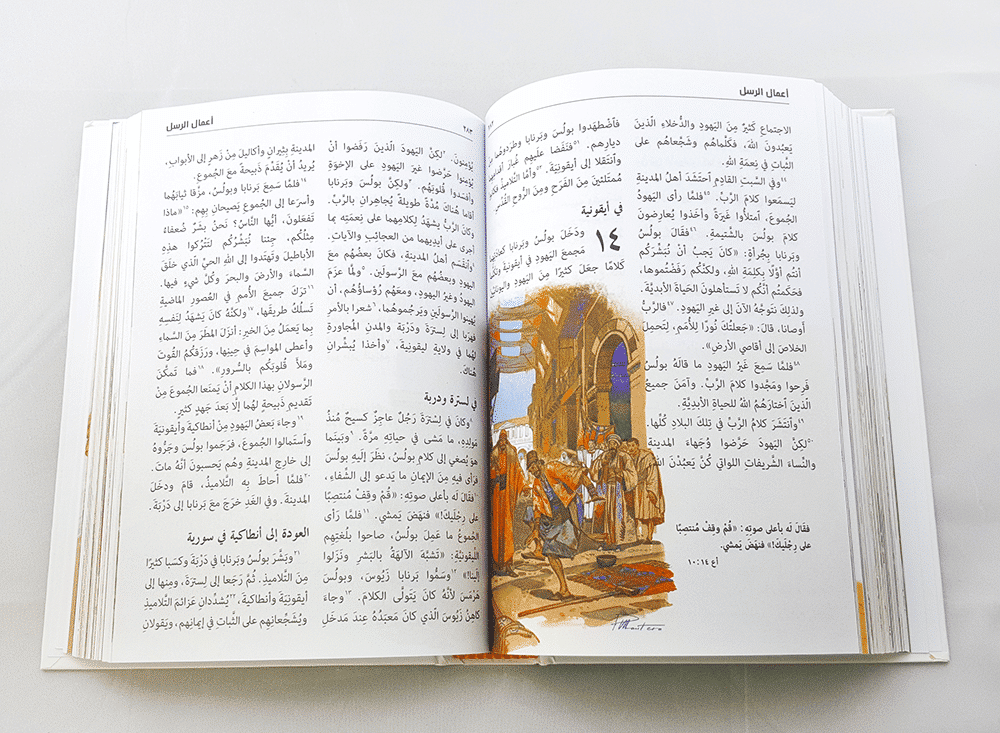 أعمال الرسل
الاجتماعِ كَثيرٌ مِنَ اليَهودِ والدُّخلاءِ الّذينَ
يَعبُدونَ اللهَ، فكَلَّماهُم وشَجَّعاهُم على
الثَّباتِ في نِعمَةِ اللهِ.
٤٤وفي السَّبتِ القادِمِ اَحتَشَدَ أهلُ المدينةِ
لِيَسمَعوا كلامَ الرَّبِّ. ٤٥فلمَّا رأى اليَهودُ
الجُموعَ، اَمتلأُوا غَيرَةً وأخَذوا يُعارِضونَ
كلامَ بولُسَ بالشَّتيمةِ. ٤٦فقالَ بولُسُ
وبَرنابا بجُرأةٍ: «كانَ يَجبُ أنْ نُبَشِّرَكُم
أنتُم أوّلًا بِكَلِمَةِ اللهِ، ولكنَّكُم رَفَضْتُموها،
فحَكَمتُم أنَّكُم لا تَستأهِلونَ الحَياةَ الأبديَّةَ.
ولذلِكَ نتَوَجَّهُ الآنَ إلى غَيرِ اليَهودِ. ٤٧فالرَّبُّ
أوصانا، قالَ: «جَعَلتُكَ نُورًا لِلأُمَمِ، لتَحمِلَ
الخلاصَ إلى أقاصي الأرضِ».
٤٨فلمَّا سَمِعَ غَيرُ اليَهودِ ما قالَهُ بولُسُ
فَرِحوا ومَجَّدوا كلامَ الرَّبِّ. وآمَنَ جميعُ
الّذينَ اَختارَهُمُ للحياةِ الأبديَّةِ.
٤٩واَنتَشَرَ كلامُ الرَّبِّ في تِلكَ البلادِ كُلِّها.
٥٠لكِنَّ اليَهودَ حَرَّضوا وُجَهاءَ المدينةِ
والنِّساءَ الشَّريفاتِ اللواتي كُنَّ يَعبُدْنَ اللهَ
فقالَ لَه بأعلى صَوتِهِ: «قُمْ وقِفْ مُنتَصِبًا
على رِجْلَيكَ!» فنهَضَ يَمشي.
أع ١٤: ١٠
فاَضْطَهَدوا بولُسَ وبَرنابا وطَرَدوهُما مِنْ
ديارِهِم. ٥١فنَفَضا علَيهِم غُبارَ
واَنتَقلا إلى أيقونيَةَ. ٥٢وأمَّا التَّلاميذُ
مُمتَلئينَ مِنَ الفَرَحِ ومِنَ الرُّوحِ القُدُسِ
في أيقونية
١٤ ودَخَلَ بولُسُ وبَرنابا
مَجمَعَ اليَهودِ في أيقونيةَ
كلامًا جعَلَ كثيرًا مِنَ اليَهودِ
٢٨٣
أعمال الرسل
يُؤمِنونَ. ٢لكِنَّ اليَهودَ الّذينَ رَفَضوا أنْ
يُؤمِنوا حَرَّضوا غَيرَ اليَهودِ على الإخوَةِ
وأفسَدوا قُلوبَهُم. ٣ولكِنَّ بولُسَ وبَرنابا
أقاما هُناكَ مُدَّةً طَويلَةً يُجاهِرانِ بالرَّبِّ.
وكانَ الرَّبُّ يَشهَدُ لِكلامِهِما على نِعمَتِهِ بِما
أجرى على أيديهِما مِنَ العجائِبِ والآياتِ.
٤واَنقَسَمَ أهلُ المدينةِ، فكانَ بعضُهُم معَ
اليَهودِ وبعضُهُم معَ الرَّسولَينِ. ٥ولمَّا عزَمَ
اليَهودُ وغَيرُ اليَهودِ، ومعَهُم رُؤساؤُهُم، أنْ
يُهينوا الرَّسولَينِ ويَرجُموهُما، ٦شعَرا بالأمرِ
فهَرَبا إلى لِسترَةَ ودَربَةَ والمُدنِ المُجاوِرةِ
لهُما في ولايةِ ليقونيةَ. ٧وأخذا يُبشِّرانِ
هُناكَ.
في لسترة ودربة
٨وكانَ في لِسترَةَ رَجُلٌ عاجِزٌ كسيحٌ مُنذُ
مَولِدِهِ، ما مَشى في حياتِهِ مرَّةً. ٩وبَينَما
هوَ يُصغي إلى كلامِ بولُسَ، نظَرَ إلَيهِ بولُسُ
فرَأى فيهِ مِنَ الإيمانِ ما يَدعو إلى الشَّفاءِ،
١٠فقالَ لَه بأعلى صوتِهِ: «قُمْ وقِفْ مُنتصِبًا
على رِجْلَيكَ!» فنهَضَ يَمشي. ١١فلمَّا رأى
الجُموعُ ما عَمِلَ بولُسُ، صاحوا بلُغتِهِم
الليقونيَّةِ: «تَشبَّهَ الآلِهةُ بالبَشَرِ ونَزَلوا
إلينا!» ١٢وسَمُّوا بَرنابا زَيُوسَ، وبولُسَ
هَرْمَسَ لأنَّهُ كانَ يَتولَّى الكلامَ. ١٣وجاءَ
كاهِنُ زَيُوسَ الّذي كانَ مَعبَدُهُ عِندَ مَدخَلِ
المدينةِ بِثيرانٍ وأكاليلَ مِنْ زَهرٍ إلى الأبوابِ،
يُريدُ أنْ يُقَدِّمَ ذَبيحَةً معَ الجُموعِ.
١٤فلمَّا سَمِعَ بَرنابا وبولُسُ، مزَّقا ثيابَهُما
وأسرَعا إلى الجُموعِ يَصيحانِ بِهِم: ١٥«ماذا
تَفعَلونَ، أيُّها النَّاسُ؟ نَحنُ بشَرٌ ضُعفاءُ
مِثْلُكُم، جِئنا نُبَشِّرُكُم لتَترُكوا هذِهِ
الأباطيلَ وتَهتَدوا إلى اللهِ الحيِّ الّذي خَلَقَ
السَّماءَ والأرضَ والبحرَ وكُلَّ شيءٍ فيها.
١٦تَرَكَ جميعَ الأُممِ في العُصورِ الماضيةِ
تَسلُكُ طَريقَها، ١٧ولكنَّهُ كانَ يَشهَدُ لنَفسِهِ
بِما يَعمَلُ مِنَ الخيرِ: أنزَلَ المطَرَ مِنَ السَّماءِ
وأعطى المَواسِمَ في حينِها، ورَزَقكُمُ القُوتَ
ومَلأَ قُلوبَكُم بالسُّرورِ». ١٨فما تَمكَّنَ
الرَّسولانِ بهذا الكلامِ أنْ يَمنَعا الجُموعَ مِنْ
تَقديمِ ذَبيحةٍ لهُما إلّا بَعدَ جَهدٍ كثيرٍ.
١٩وجاءَ بَعضُ اليَهودِ مِنْ أنطاكيةَ وأيقونيةَ
واَستَمالوا الجُموعَ، فرَجَموا بولُسَ وجَرُّوهُ
إلى خارِجِ المدينةِ وهُم يَحسَبونَ أنَّهُ ماتَ.
٢٠فلمَّا أحاطَ بِه التَّلاميذُ، قامَ ودخَلَ
المدينةَ. وفي الغَدِ خرَجَ معَ بَرنابا إلى دَربَةَ.
العودة إلى أنطاكية في سورية
٢١وبَشَّرَ بولُسُ وبَرنابا في دَربَةَ وكَسَبا كثيرًا
مِنَ التَّلاميذِ. ثُمَّ رَجَعا إلى لِسترَةَ، ومِنها إلى
أيقونيَةَ وأنطاكيةَ، ٢٢يُشدِّدانِ عَزائمَ التَّلاميذِ
ويُشَجِّعانِهِم على الثَّباتِ في إيمانِهِم، ويَقولانِ